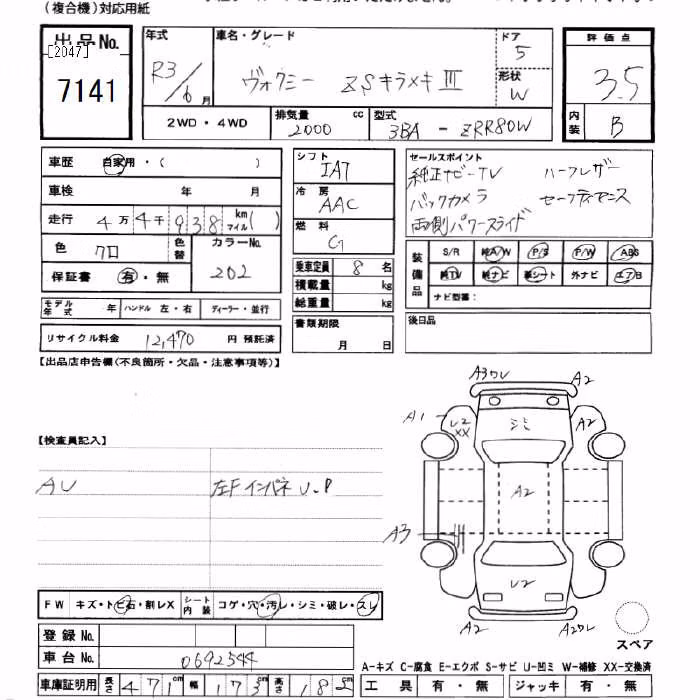 (複合機)対応用紙
出品No.
[2047]
7141
年式
R3/6月
車名・グレード
ヴォクシー ZSキラメキⅢ
ドア
5
形状
W
評価点
3.5
内装
B
2WD・4WD
排気量
2000 cc
型式
3BA - ZRR80W
車歴 自家用・( )
車検 年 月
走行 4万4千938 km マイル( )
色 クロ 色替 カラーNo. 202
保証書 有・無
モデル年式 年 ハンドル 左・右 ディーラー・並行
リサイクル料金 12,470 円 預託済
シフト
IAT
冷房
AAC
燃料
G
乗車定員 8 名
積載量 kg
総重量 kg
書類期限
月 日
セールスポイント
純正ナビ-TV ハーフレザー
バックカメラ セーフティセンス
両側パワースライド
装備品
S/R 純A/W P/S P/W ABS
純TV 純ナビ 革シート 外ナビ エアB
ナビ型番:
後日品
【出品店申告欄(不良箇所・欠品・注意事項等)】
【検査員記入】
AU 左Fインパネ U-P
A3ワレ A2
A1 U2 XX シミ A2
A2
A3
U2
A2 A2ワレ
スペア
FW キズ・トビ石・割レX シート内装 コゲ・穴・汚レ・シミ・破レ・スレ
登録No.
車台No. 0692544
車庫証明用 長さ 471cm 幅 173cm 高さ 182cm
A-キズ C-腐食 E-エクボ S-サビ U-凹ミ W-補修 XX-交換済
工具 有・無 ジャッキ 有・無